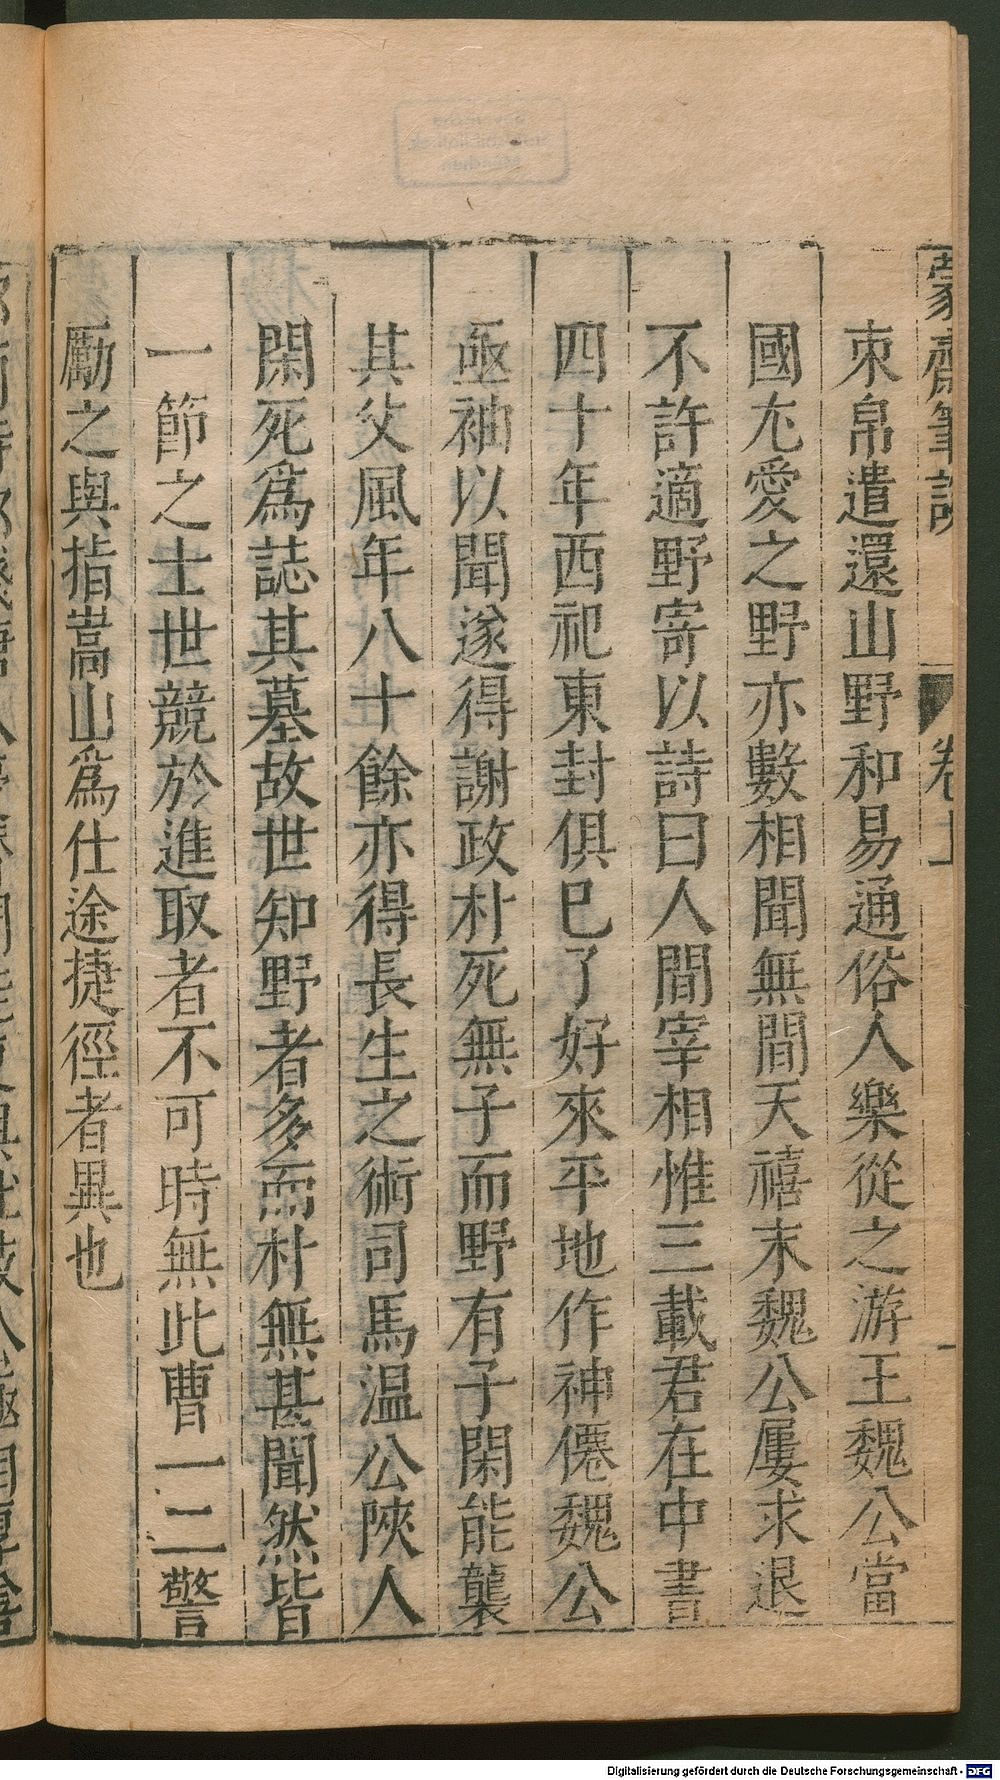 蒙齋筆談
卷上
束帛遣還山野和易通俗人樂從之游王魏公當
國尤愛之野亦數相聞無間天禧末魏公屢求退
不許適野寄以詩曰人間宰相惟三載君在中書
四十年西祀東封俱巳了好來平地作神僊魏公
亟袖以聞遂得謝政朴死無子而野有子閑能襲
其父風年八十餘亦得長生之術司馬温公陝人
閑死爲誌其墓故世知野者多而朴無甚聞然皆
一節之士世競於進取者不可時無此曹一二警
勵之與指嵩山爲仕途捷徑者異也
Digitalisierung gefördert durch die Deutsche Forschungsgemeinschaft - DFG